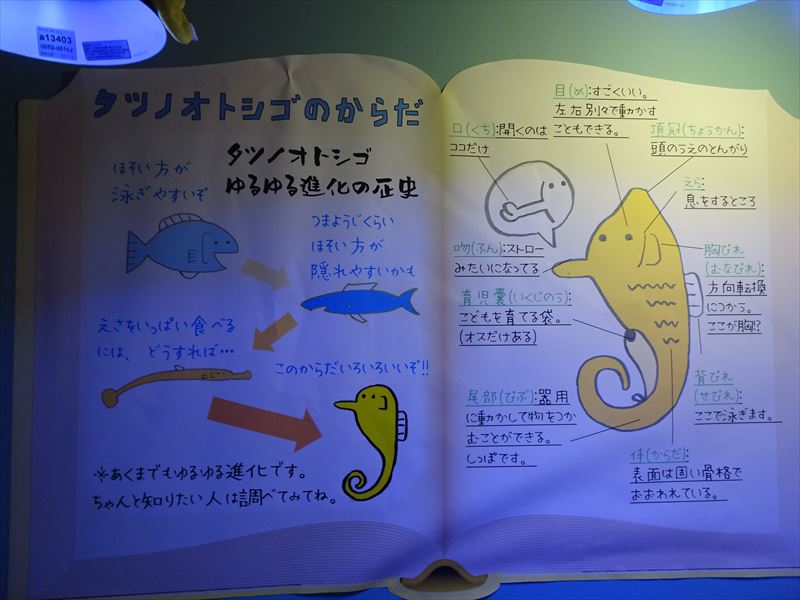 a13403
0052-00152
タツノオトシゴのからだ
タツノオトシゴ
ゆるゆる進化の歴史
ほそい方が
泳ぎやすいぞ
つまようじくらい
ほそい方が
隠れやすいかも
えさをいっぱい食べる
には、どうすれば…
このからだいろいろいいぞ!!
※あくまでもゆるゆる進化です。
ちゃんと知りたい人は調べてみてね。
目(め):すごくいい。
左右別々で動かす
こともできる。
口(くち):開くのは
ココだけ
頂冠(ちょうかん):
頭のうえのとんがり
えら:
息をするところ
吻(ふん):ストロー
みたいになってる
胸びれ
(むなびれ):
方向転換
につかう。
ここが胸!?
育児嚢(いくじのう):
こどもを育てる袋。
(オスだけある)
背びれ
(せびれ):
ここで泳ぎます。
尾部(びぶ):器用
に動かして物をつか
むことができる。
しっぽです。
体(からだ):
表面は固い骨格で
おおわれている。